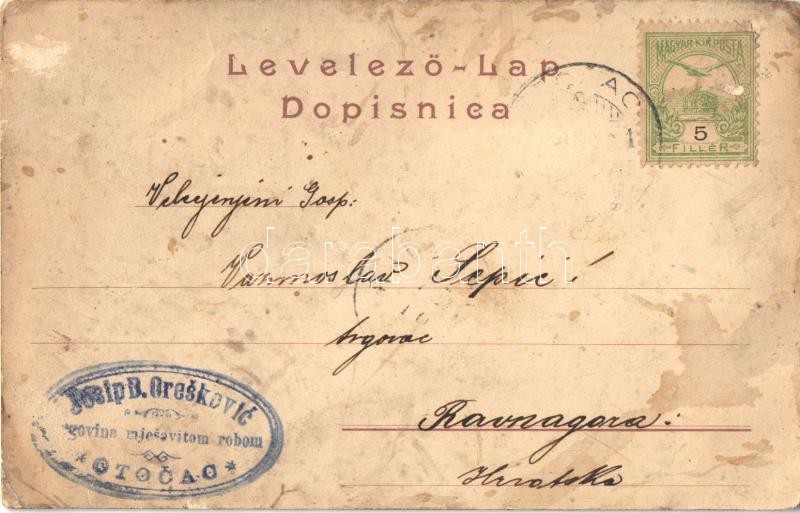 Levelező-Lap
Dopisnica
MAGYAR KIR. POSTA
5
FILLÉR
Gosp:
Sepić
trgovac
Ravnagora:
Hrvatska
Josip B. Orešković
govina mješovitom robom
OTOČAC
darabanth